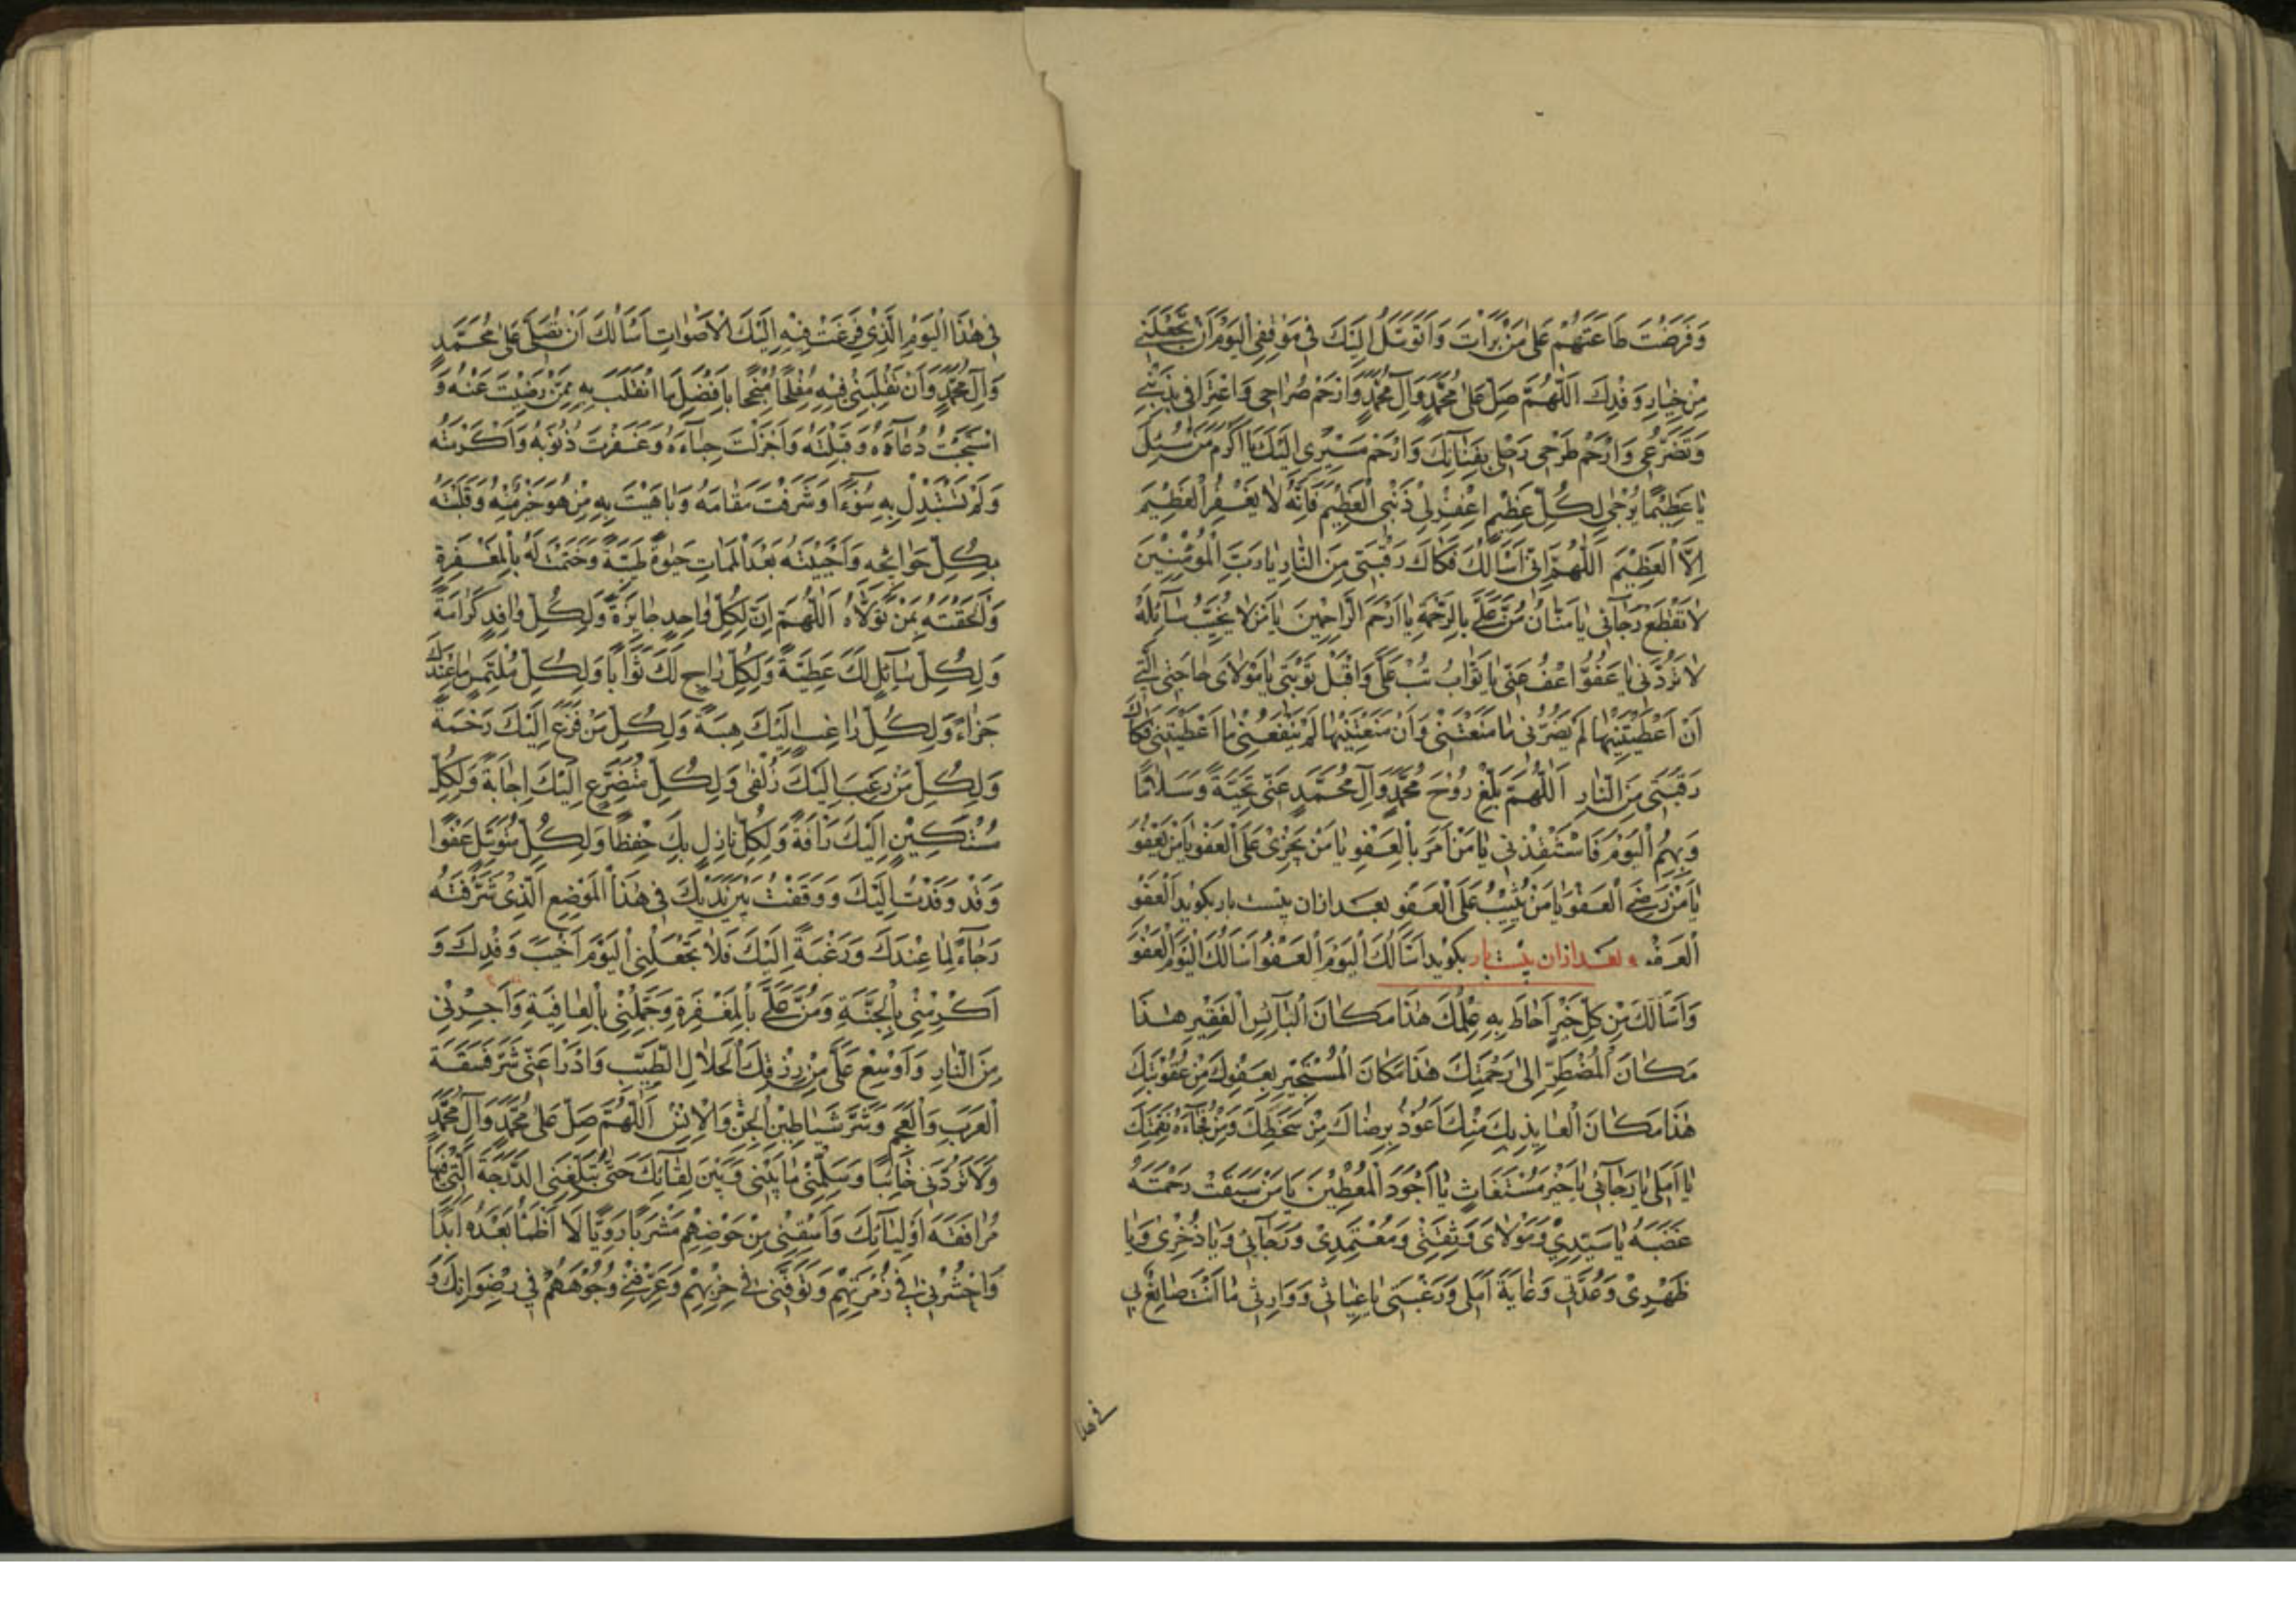 وَفَرَضْتَ طَاعَتَهُمْ عَلىٰ مَنْ بَرَأْتَ وَاَتَوَسَّلُ اِلَيْكَ فى مَوْقِفِى الْيَوْمَ اَنْ تَجْعَلَنى
مِنْ خِيٰارِ وَفْدِكَ اَللّٰهُمَّ صَلِّ عَلىٰ مُحَمَّدٍ وَآلِ مُحَمَّدٍ وَارْحَمْ صُرٰاخى وَاعْتِرٰافى بِذَنْبى
وَتَضَرُّعى وَارْحَمْ طَرْحى رَحْلى بِفِنٰائِكَ وَارْحَمْ مَسيرى اِلَيْكَ يٰا اَكْرَمَ مَنْ سُئِلَ
يٰا عَظيمًا يُرْجىٰ لِكُلِّ عَظيمٍ اغْفِرْ لى ذَنْبِى الْعَظيمَ فَاِنَّهُ لاٰ يَغْفِرُ الْعَظيمَ
اِلاَّ الْعَظيمُ اَللّٰهُمَّ اِنّى اَسْاَلُكَ فَكٰاكَ رَقَبَتى مِنَ النّٰارِ يٰا رَبَّ الْمُؤْمِنينَ
لاٰ تَقْطَعْ رَجٰائى يٰا مَنّٰانُ مُنَّ عَلَىَّ بِالرَّحْمَةِ يٰا اَرْحَمَ الرّٰاحِمينَ يٰا مَنْ لاٰ يُخَيِّبُ سٰائِلَهُ
لاٰ تَرُدَّنى يٰا عَفُوُّ اعْفُ عَنّى يٰا تَوّٰابُ تُبْ عَلَىَّ وَاقْبَلْ تَوْبَتى يٰا مَوْلاٰىَ حٰاجَتِى الَّتى
اَنْ اَعْطَيْتَنيهٰا لَمْ يَضُرَّنى مٰا مَنَعْتَنى وَاَنْ مَنَعْتَنيهٰا لَمْ يَنْفَعْنى مٰا اَعْطَيْتَنى فَكٰاكَ
رَقَبَتى مِنَ النّٰارِ اَللّٰهُمَّ بَلِّغْ رُوحَ مُحَمَّدٍ وَآلِ مُحَمَّدٍ عَنّى تَحِيَّةً وَسَلاٰمًا
وَبِهِمُ الْيَوْمَ فَاسْتَنْقِذْنى يٰا مَنْ اَمَرَ بِالْعَفْوِ يٰا مَنْ يَجْزى عَلَى الْعَفْوِ يٰا مَنْ يَعْفُو
يٰا مَنْ رَضِىَ الْعَفْوَ يٰا مَنْ يُثيبُ عَلَى الْعَفْوِ بعد ازان بيست بار بكويد اَلْعَفْوَ
الْعَفْوَ و بعد ازان بيست بار بكويد اَسْاَلُكَ الْيَوْمَ الْعَفْوَ اَسْاَلُكَ الْيَوْمَ الْعَفْوَ
وَاَسْاَلُكَ مِنْ كُلِّ خَيْرٍ اَحٰاطَ بِهِ عِلْمُكَ هٰذٰا مَكٰانُ الْبٰائِسِ الْفَقيرِ هٰذٰا
مَكٰانُ الْمُضْطَرِّ اِلىٰ رَحْمَتِكَ هٰذٰا مَكٰانُ الْمُسْتَجيرِ بِعَفْوِكَ مِنْ عُقُوبَتِكَ
هٰذٰا مَكٰانُ الْعٰائِذِ بِكَ مِنْكَ اَعُوذُ بِرِضٰاكَ مِنْ سَخَطِكَ وَمِنْ فُجٰاءَةِ نَقِمَتِكَ
يٰا اَمَلى يٰا رَجٰائى يٰا خَيْرَ مُسْتَغٰاثٍ يٰا اَجْوَدَ الْمُعْطينَ يٰا مَنْ سَبَقَتْ رَحْمَتُهُ
غَضَبَهُ يٰا سَيِّدى وَمَوْلاٰىَ وَثِقَتى وَمُعْتَمَدى وَرَجٰائى وَيٰا ذُخْرى وَيٰا
ظَهْرى وَعُدَّتى وَغٰايَةَ اَمَلى وَرَغْبَتى يٰا غِيٰاثى وَوٰارِثى مٰا اَنْتَ صٰانِعٌ بى
فى هذا
فى هٰذَا الْيَوْمِ الَّذى فَزِعَتْ فيهِ اِلَيْكَ الْاَصْوٰاتُ اَسْاَلُكَ اَنْ تُصَلِّىَ عَلىٰ مُحَمَّدٍ
وَآلِ مُحَمَّدٍ وَاَنْ تَقْلِبَنى فيهِ مُفْلِحًا مُنْجِحًا بِاَفْضَلِ مَا انْقَلَبَ بِهِ مَنْ رَضيتَ عَنْهُ وَ
اسْتَجَبْتَ دُعٰاءَهُ وَقَبِلْتَهُ وَاَجْزَلْتَ حِبٰاءَهُ وَغَفَرْتَ ذُنُوبَهُ وَاَكْرَمْتَهُ
وَلَمْ تَسْتَبْدِلْ بِهِ سُوءًا وَشَرَّفْتَ مَقٰامَهُ وَبٰاهَيْتَ بِهِ مِنْ هُوَ خَيْرٌ مِنْهُ وَقَلَبْتَهُ
بِكُلِّ حَوٰائِجِهِ وَاَحْيَيْتَهُ بَعْدَ الْمَمٰاتِ حَيٰوةً طَيِّبَةً وَخَتَمْتَ لَهُ بِالْمَغْفِرَةِ
وَاَلْحَقْتَهُ بِمَنْ تَوَلاّٰهُ اَللّٰهُمَّ اِنَّ لِكُلِّ وٰاحِدٍ جٰايِزَةً وَلِكُلِّ وٰافِدٍ كَرٰامَةً
وَلِكُلِّ سٰائِلٍ لَكَ عَطِيَّةً وَلِكُلِّ رٰاجٍ لَكَ ثَوٰابًا وَلِكُلِّ مُلْتَمِسٍ مٰا عِنْدَكَ
جَزٰاءً وَلِكُلِّ رٰاغِبٍ اِلَيْكَ هِبَةً وَلِكُلِّ مَنْ فَزِعَ اِلَيْكَ رَحْمَةً
وَلِكُلِّ مَنْ رَغِبَ اِلَيْكَ زُلْفىٰ وَلِكُلِّ مُتَضَرِّعٍ اِلَيْكَ اِجٰابَةً وَلِكُلِّ
مُسْتَكينٍ اِلَيْكَ رَأْفَةً وَلِكُلِّ نٰازِلٍ بِكَ حِفْظًا وَلِكُلِّ مُتَوَسِّلٍ عَفْوًا
وَقَدْ وَفَدْتُ اِلَيْكَ وَوَقَفْتُ بَيْنَ يَدَيْكَ فى هٰذَا الْمَوْضِعِ الَّذى شَرَّفْتَهُ
رَجٰاءً لِمٰا عِنْدَكَ وَرَغْبَةً اِلَيْكَ فَلاٰ تَجْعَلْنِى الْيَوْمَ اَخْيَبَ وَفْدِكَ وَ
اَكْرِمْنى بِالْجَنَّةِ وَمُنَّ عَلَىَّ بِالْمَغْفِرَةِ وَجَمِّلْنى بِالْعٰافِيَةِ وَاَجِرْنى
مِنَ النّٰارِ وَاَوْسِعْ عَلَىَّ مِنْ رِزْقِكَ الْحَلاٰلِ الطَّيِّبِ وَادْرَأْ عَنّى شَرَّ فَسَقَةِ
الْعَرَبِ وَالْعَجَمِ وَشَرَّ شَيٰاطينِ الْجِنِّ وَالْاِنْسِ اَللّٰهُمَّ صَلِّ عَلىٰ مُحَمَّدٍ وَآلِ مُحَمَّدٍ
وَلاٰ تَرُدَّنى خٰائِبًا وَسَلِّمْنى مٰا بَيْنى وَبَيْنَ لِقٰائِكَ حَتّىٰ تُبَلِّغَنِى الدَّرَجَةَ الَّتى فيهٰا
مُرٰافَقَةُ اَوْلِيٰائِكَ وَاَسْقِنى مِنْ حَوْضِهِمْ مَشْرَبًا رَوِيًّا لاٰ اَظْمَأُ بَعْدَهُ اَبَدًا
وَاحْشُرْنى فى زُمْرَتِهِمْ وَتَوَفَّنى فى حِزْبِهِمْ وَعَرِّفْنى وُجُوهَهُمْ فى رِضْوٰانِكَ وَ